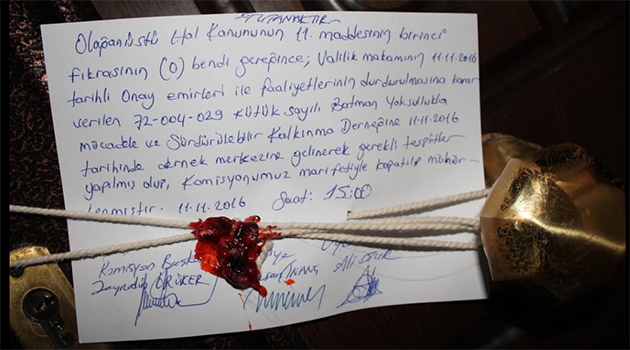 TUTANAKTIR
Olağanüstü Hal Kanununun 11. maddesinin birinci
fıkrasının (O) bendi gereğince; Valilik makamının 11.11.2016
tarihli Onay emirleri ile faaliyetlerinin durdurulmasına karar
verilen 72-004-029 kütük sayılı Batman Yoksullukla
mücadele ve Sürdürülebilir Kalkınma Derneğine 11.11.2016
tarihinde dernek merkezine gelinerek gerekli tespitler
yapılmış olup, Komisyonumuz marifetiyle kapatılıp mühür-
lenmiştir. 11.11.2016 Saat: 15:00
Komisyon